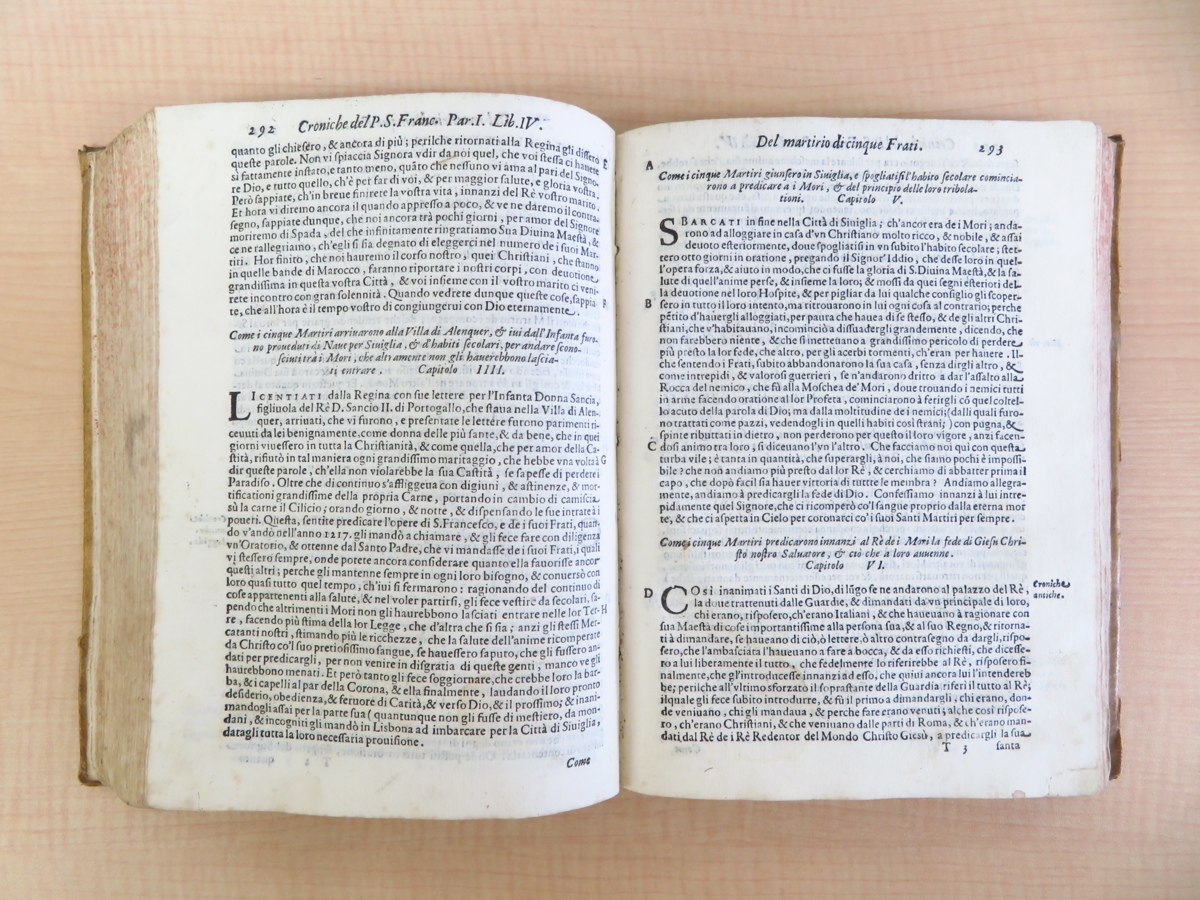 292 Croniche del P. S. Franc. Par. I. Lib. IV.
quanto gli chiesero, & ancora di più; perilche ritornati alla Regina gli dissero E
queste parole. Non vi spiaccia Signora vdir da noi quel, che voi stessa ci hauete
sì fattamente instato, e tanto meno, quãto che nessuno vi ama al pari del Signo-
re Dio, e tutto quello, ch'è per far di voi, & per maggior salute, e gloria vostra.
Però sappiate, ch'in breue finirete la vostra vita, innanzi del Rè vostro marito.
Et hora vi diremo ancora il quando appresso a poco, & ve ne daremo il contra-
segno, sappiate dunque, che noi ancora trà pochi giorni, per amor del Signore
moriremo di Spada, del che infinitamente ringratiamo Sua Diuina Maestà, &
ce ne rallegriamo, ch'egli si sia degnato di eleggerci nel numero de i suoi Mar-
tiri. Hor finito, che noi hauremo il corso nostro, quei Christiani, che stanno
in quelle bande di Marocco, faranno riportare i nostri corpi, con deuotione
grandissima in questa vostra Città, & voi insieme con il vostro marito ci veni-
rete incontro con gran solennità. Quando vedrete dunque queste cose, sappia- F
te, che all'hora è il tempo vostro di congiungerui con Dio eternamente.
Come i cinque Martiri arriuarono alla Villa di Alenquer, & iui dall'Infanta furo-
no proueduti di Naue per Siuiglia, & d'habiti secolari, per andare scono-
sciuti trà i Mori, che altramente non gli hauerebbono lascia-
ti entrare. Capitolo IIII.
LICENTIATI dalla Regina con sue lettere per l'Infanta Donna Sancia,
figliuola del Rè D. Sancio II. di Portogallo, che staua nella Villa di Alen-
quer, arriuati, che vi furono, e presentate le lettere furono parimenti ri-
ceuuti da lei benignamente, come donna delle più sante, & da bene, che in quei
giorni viuessero in tutta la Christianità, & come quella, che per amor della Ca-
stità, rifiutò in tal maniera ogni grandissimo maritaggio, che hebbe vna volta à G
dir queste parole, ch'ella non violarebbe la sua Castità, se sapesse di perdere il
Paradiso. Oltre che di continuo s'affliggeua con digiuni, & astinenze, & mor-
tificationi grandissime della propria Carne, portando in cambio di camiscia
sù la carne il Cilicio; orando giorno, & notte, & dispensando le sue intrate à i
poueri. Questa, sentite predicare l'opere di S. Francesco, e de i suoi Frati, quan-
do v'andò nell'anno 1217. gli mandò a chiamare, & gli fece fare con diligenza
vn'Oratorio, & ottenne dal Santo Padre, che vi mandasse de i suoi Frati, i quali
vi stessero sempre, onde potete ancora considerare quanto ella fauorisse ancor
questi altri; perche gli mantenne sempre in ogni loro bisogno, & conuersò con
loro quasi tutto quel tempo, ch'iui si fermarono: ragionando del continuo di
cose appartenenti alla salute, & nel voler partirsi, gli fece vestire da secolari, sa-
pendo che altrimenti i Mori non gli haurebbono lasciati entrare nelle lor Ter- H
re, facendo più stima della lor Legge, che d'altra che si sia; anzi gli stessi Mer-
catanti nostri, stimando più le ricchezze, che la salute dell'anime ricomperate
da Christo co'l suo pretiosissimo sangue, se hauessero saputo, che gli fussero an-
dati per predicargli, per non venire in disgratia di queste genti, manco ve gli
haurebbono menati. Et però tanto gli fece soggiornare, che crebbe loro la bar-
ba, & i capelli al par della Corona, & ella finalmente, laudando il loro pronto
desiderio, obedienza, & feruore di Carità, & verso Dio, & il prossimo; & inani-
mandogli assai per la parte sua (quantunque non gli fusse di mestiero, da mon-
dani, & incogniti gli mandò in Lisbona ad imbarcare per la Città di Siuiglia,
datagli tutta la loro necessaria prouisione.
Come
Del martirio di cinque Frati. 293
A
Come i cinque Martiri giunsero in Siuiglia, e spogliatisi l'habito secolare comincia-
rono a predicare a i Mori, & del principio delle loro tribola-
tioni. Capitolo V.
SBARCATI in fine nella Città di Siuiglia; ch'ancora era de i Mori; anda-
rono ad alloggiare in casa d'vn Christiano molto ricco, & nobile, & assai
deuoto esteriormente, doue spogliatisi in vn subito l'habito secolare; stet-
tero otto giorni in oratione, pregando il Signor'Iddio, che desse loro in quel-
l'opera forza, & aiuto in modo, che ci fusse la gloria di S. Diuina Maestà, & la sa-
lute di quell'anime perse, & insieme la loro; & mossi da quei segni esteriori del-
la deuotione nel loro Hospite, & per pigliar da lui qualche consiglio gli scoper-
B sero in tutto il loro intento, ma ritrouarono in lui ogni cosa al contrario; perche
pẽtito d'hauergli alloggiati, per paura che hauea di se stesso, & de gli altri Chri-
stiani, che v'habitauano, incominciò a dissuadergli grandemente, dicendo, che
non farebbero niente, & che si metteuano a grandissimo pericolo di perdere
più presto la lor fede, che altro, per gli acerbi tormenti, ch'eran per hauere. Il-
che sentendo i Frati, subito abbandonarono la sua casa, senza dirgli altro, &
come intrepidi, & valorosi guerrieri, se n'andarono dritto a dar l'assalto alla
Rocca del nemico, che fù alla Moschea de' Mori, doue trouando i nemici tutti
in arme facendo oratione al lor Profeta, cominciarono à ferirgli cõ quel coltel-
lo acuto della parola di Dio; ma dalla moltitudine de i nemici; (dalli quali furo-
no trattati come pazzi, vedendogli in quelli habiti così strani;) con pugna, &
spinte ributtati in dietro, non perderono per questo il loro vigore, anzi facen-
C dosi animo tra loro; si diceuano l'vn l'altro. Che facciamo noi qui con questa
turba vile; è tanta in quantità, che superargli, à noi, che siamo pochi è impossi-
bile? che non andiamo più presto dal lor Rè, & cerchiamo di abbatter prima il
capo, che dopò facil sia hauer vittoria di tuttte le membra? Andiamo allegra-
mente, andiamo à predicargli la fede di Dio. Confessiamo innanzi à lui intre-
pidamente quel Signore, che ci ricomperò co'l sangue proprio dalla eterna mor
te, & che ci aspetta in Cielo per coronarci co' i suoi Santi Martiri per sempre.
Come i cinque Martiri predicarono innanzi al Rè de i Mori la fede di Giesu Chri-
sto nostro Saluatore, & ciò che a loro auuenne.
Capitolo VI.
D COSÌ inanimati i Santi di Dio, di lũgo se ne andarono al palazzo del Rè, Croniche
la doue trattenuti dalle Guardie, & dimandati da vn principale di loro, antiche.
chi erano, risposero, ch'erano Italiani, & che haueuano à ragionare con
sua Maestà di cose importantissime alla persona sua, & al suo Regno, & ritorna-
ti à dimandare, se haueano di ciò, ò lettere, ò altro contrasegno da dargli, rispo-
sero, che l'ambasciata l'haueuano a fare a bocca, & da esso richiesti, che dicesse-
ro a lui liberamente il tutto, che fedelmente lo riferirebbe al Rè, risposero fi-
nalmente, che gl'introducesse innanzi ad esso, che quiui ancor lui l'intendereb
be; perilche all'vltimo sforzato il soprastante della Guardia riferì il tutto al Rè;
il quale gli fece subito introdurre, & fù il primo a dimandargli, chi erano, don-
de veniuano, chi gli mandaua, & perche fare erano venuti; alche così rispose-
ro, ch'erano Christiani, & che veniuano dalle parti di Roma, & ch'erano man-
dati, dal Rè de i Rè Redentor del Mondo Christo Giesù, a predicargli la sua
T 3 santa